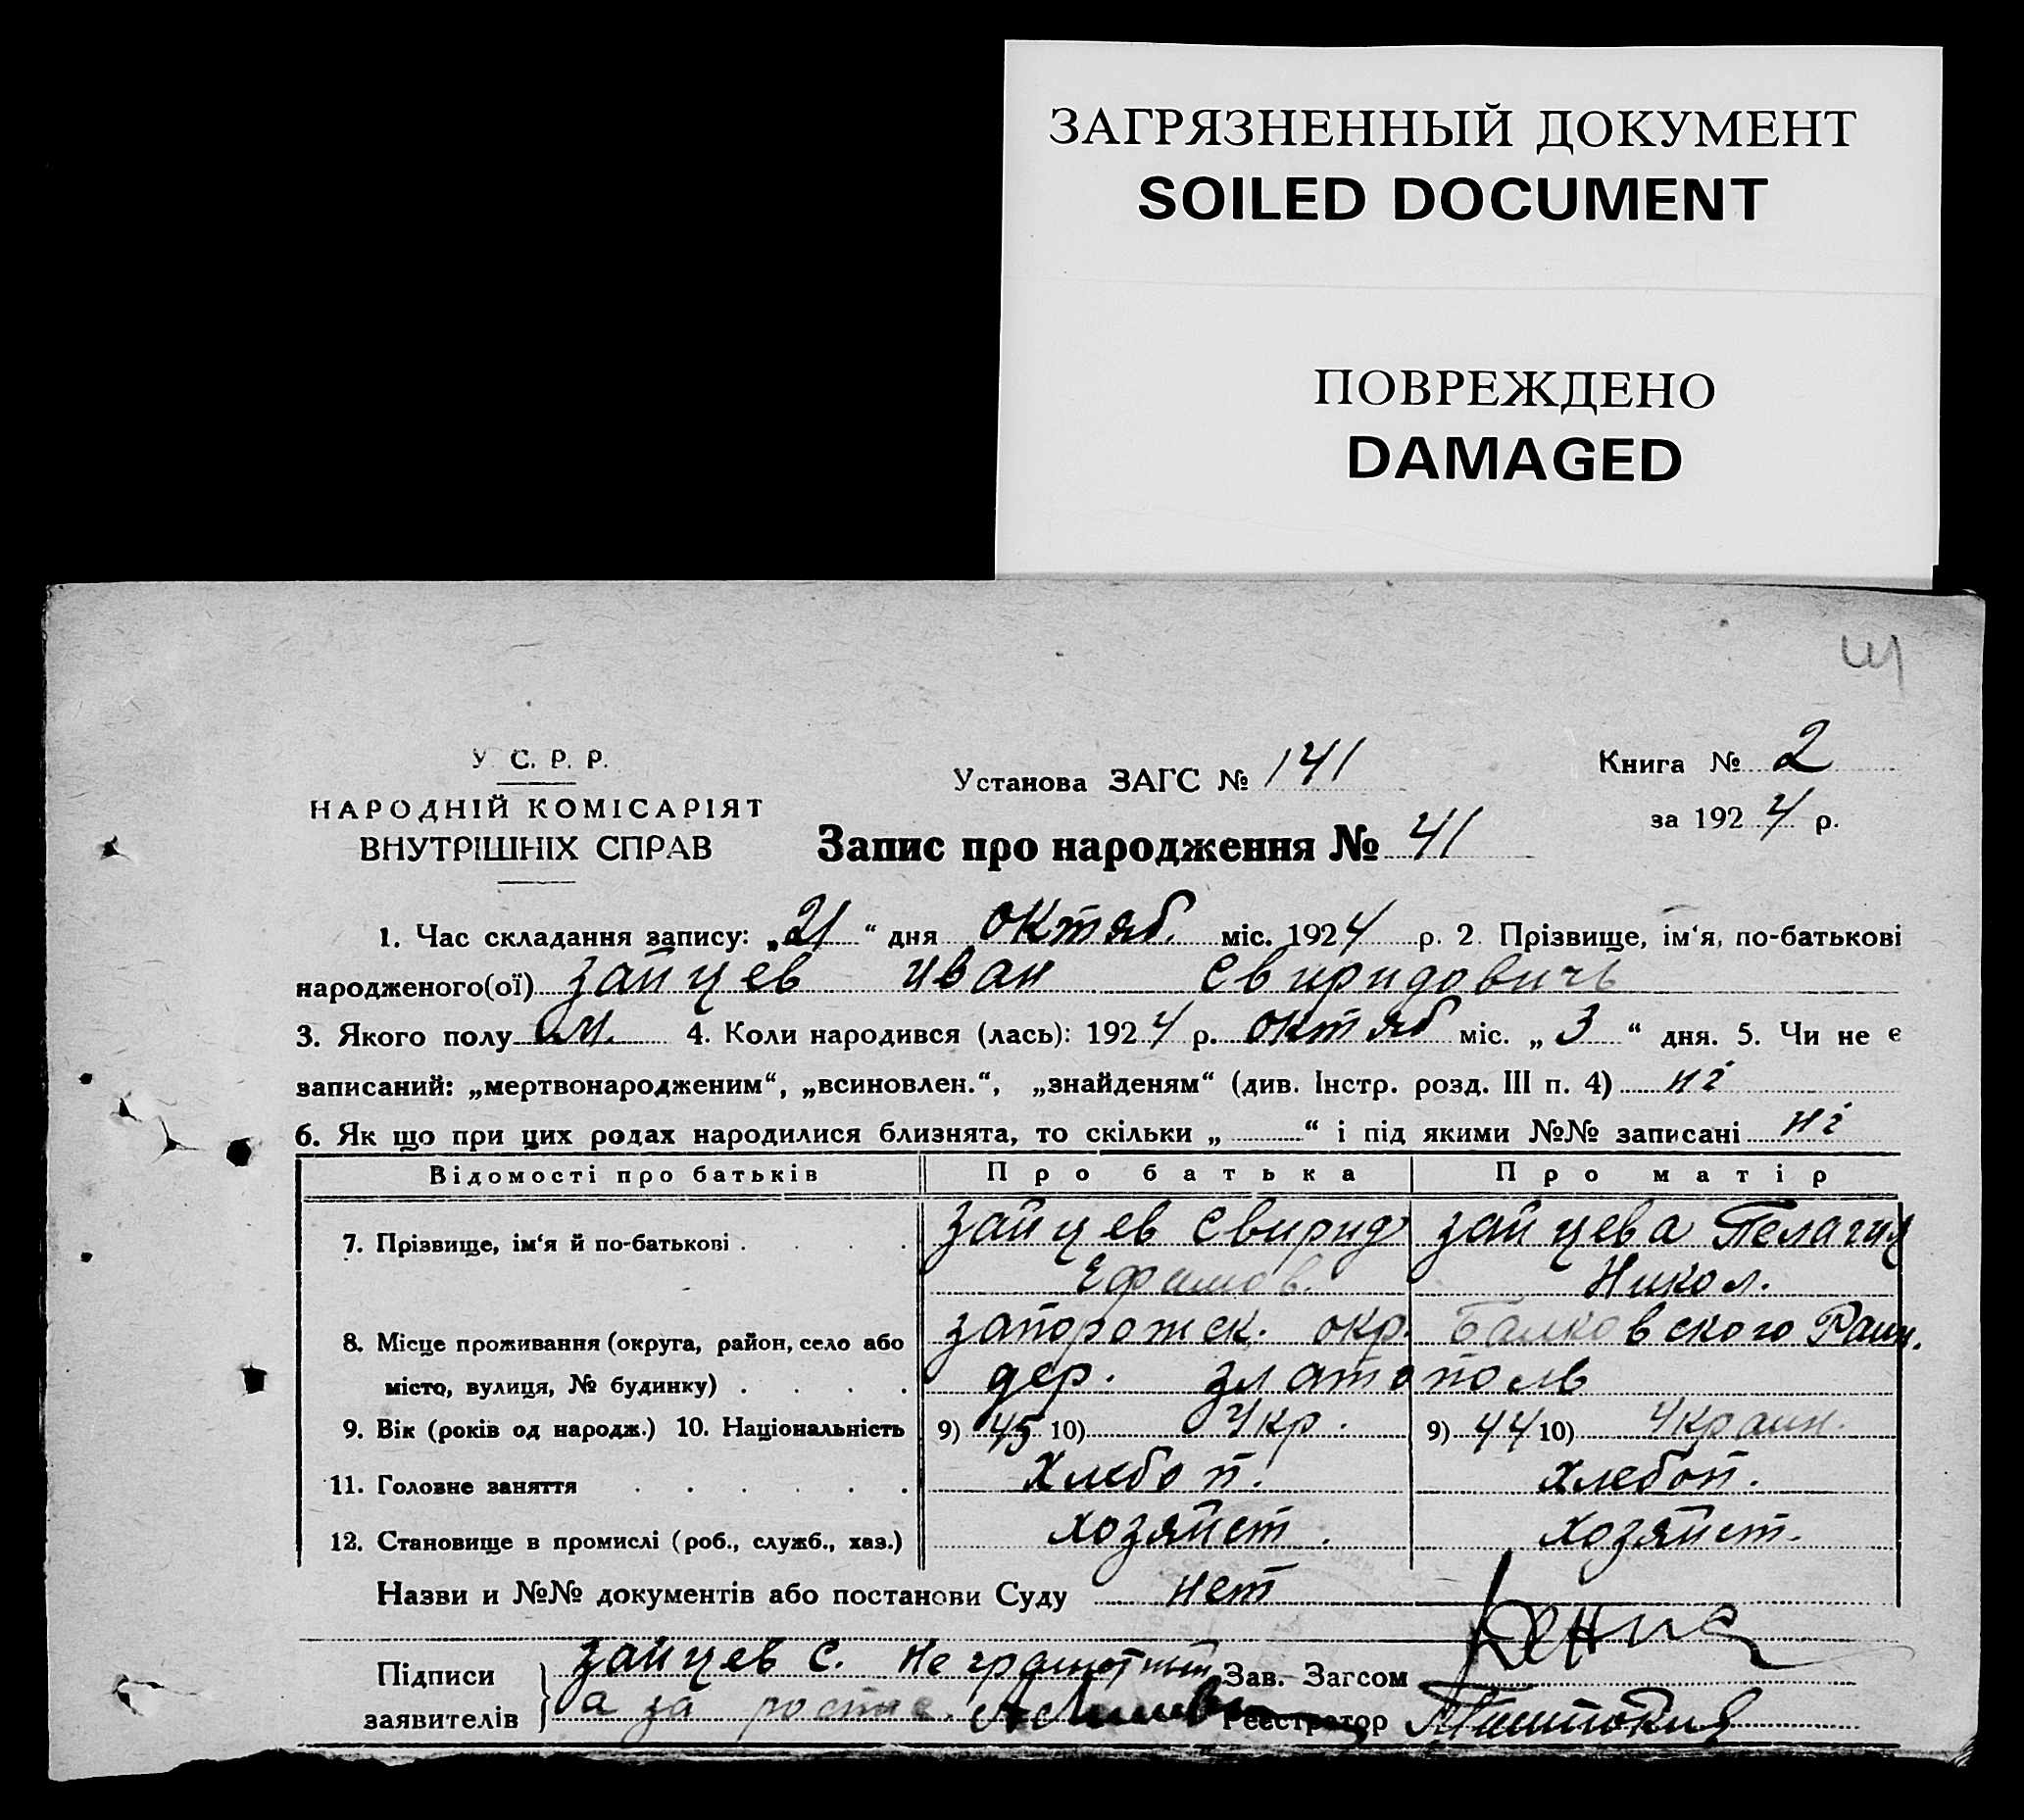 ЗАГРЯЗНЕННЫЙ ДОКУМЕНТ
SOILED DOCUMENT
ПОВРЕЖДЕНО
DAMAGED
41
У. С. Р. Р.
НАРОДНІЙ КОМІСАРІЯТ
ВНУТРІШНІХ СПРАВ
Установа ЗАГС № 141
Книга № 2
за 1924 р.
Запис про народження № 41
1. Час складання запису: „21“ дня октяб. міс. 1924 р. 2. Прізвище, ім‘я, по-батькові
народженого(ої) Зайцев Иван Свиридовичь
3. Якого полу м. 4. Коли народився (лась): 1924 р. октяб міс. „3“ дня. 5. Чи не є
записаний: „мертвонародженим“, „всиновлен.“, „знайденям“ (див. Інстр. розд. III п. 4) ні
6. Як що при цих родах народилися близнята, то скільки „ “ і під якими №№ записані ні
Відомості про батьків Про батька Про матір
7. Прізвище, ім‘я й по-батькові . . . . Зайцев Свирид Зайцева Пелагия
Ефимов. Никол.
8. Місце проживання (округа, район, село або Запорожск. окр. Балковского Район.
місто, вулиця, № будинку) . . . . дер. Златополь
9. Вік (років од народж.) 10. Національність 9) 45 10) Укр. 9) 44 10) Украин.
11. Головне заняття . . . . . . Хлебоп. хлебоп.
12. Становище в промислі (роб., служб., хаз.) хозяйст. хозяйст.
Назви и №№ документів або постанови Суду нет
Підписи Зайцев С. неграмотный Зав. Загсом
заявителів а за росписс. Реєстратор